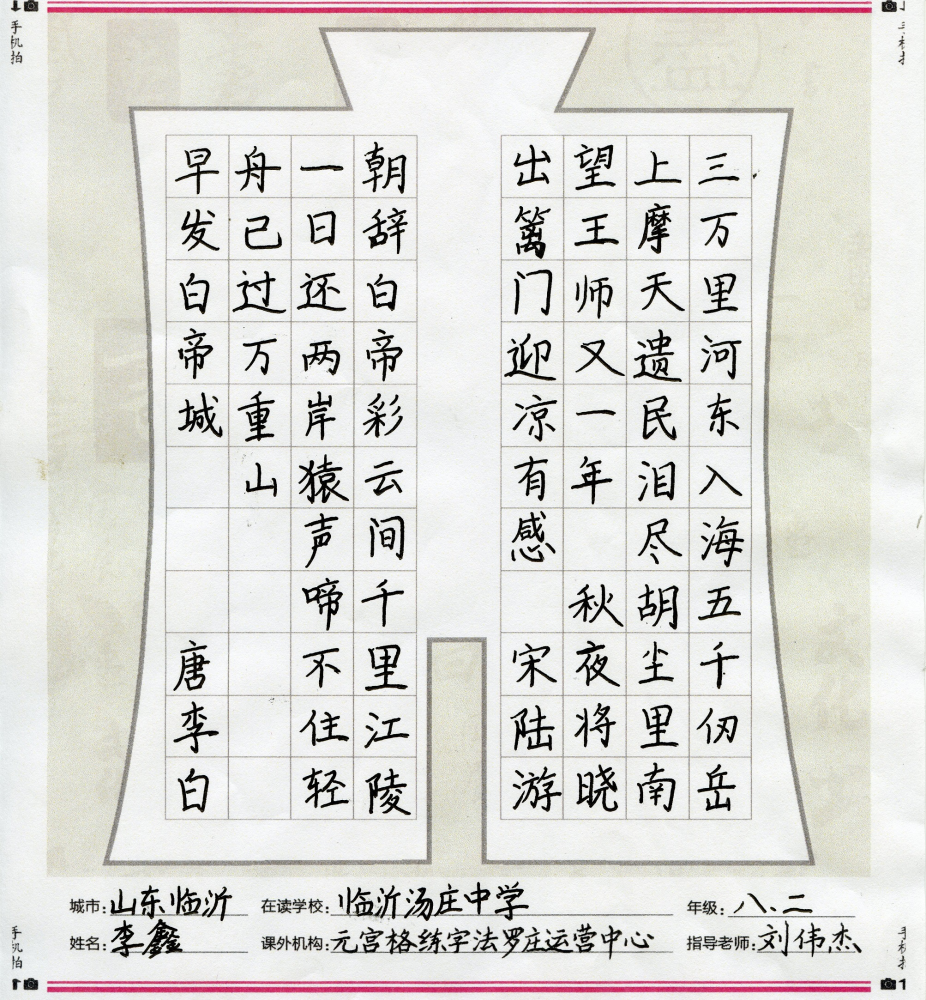 三万里河东入海五千仞岳
上摩天遗民泪尽胡尘里南
望王师又一年 秋夜将晓
出篱门迎凉有感 宋陆游
朝辞白帝彩云间千里江陵
一日还两岸猿声啼不住轻
舟已过万重山
早发白帝城 唐李白
城市:山东临沂 在读学校:临沂汤庄中学 年级:八、二
姓名:李鑫 课外机构:元宫格练字法罗庄运营中心 指导老师:刘伟杰
手机拍
手机拍